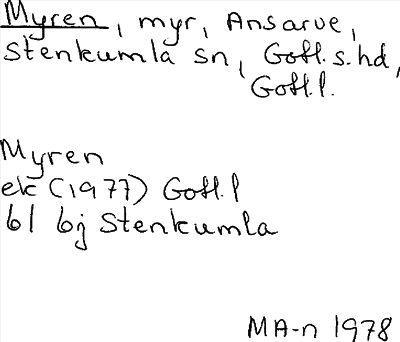 Myren, myr, Ansarve,
Stenkumla sn, Gotl. s. hd,
Gotl. l.
Myren
ek (1977) Gotl. l
bl 6j Stenkumla
MA-n 1978